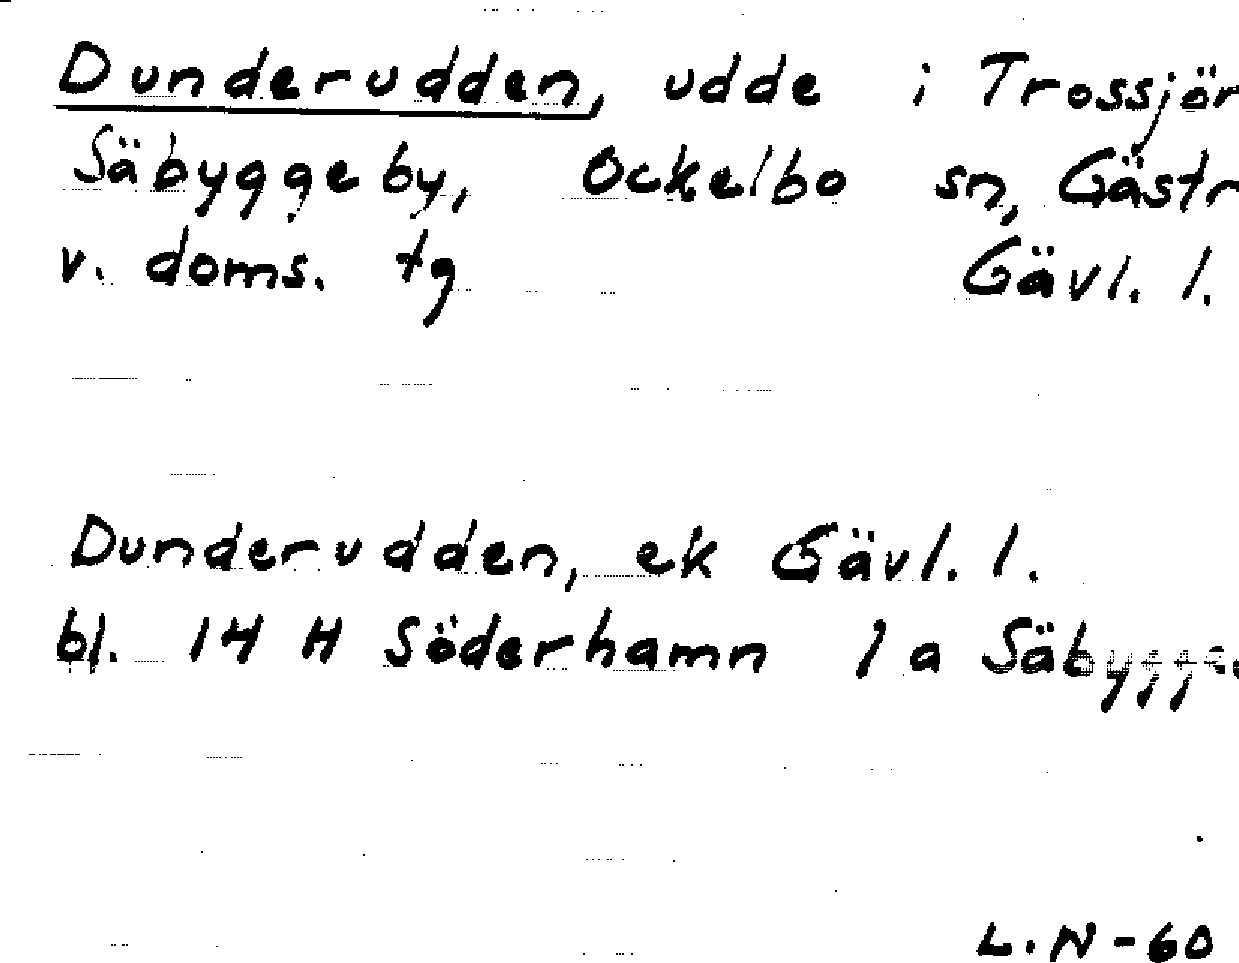 Dunderudden, udde i Trossjör
Säbyggeby, Ockelbo sn, Gästr
v. doms. tg Gävl. l.
Dunderudden, ek Gävl. l.
bl. 14 H Söderhamn 1 a Säbygge.
L.N-60